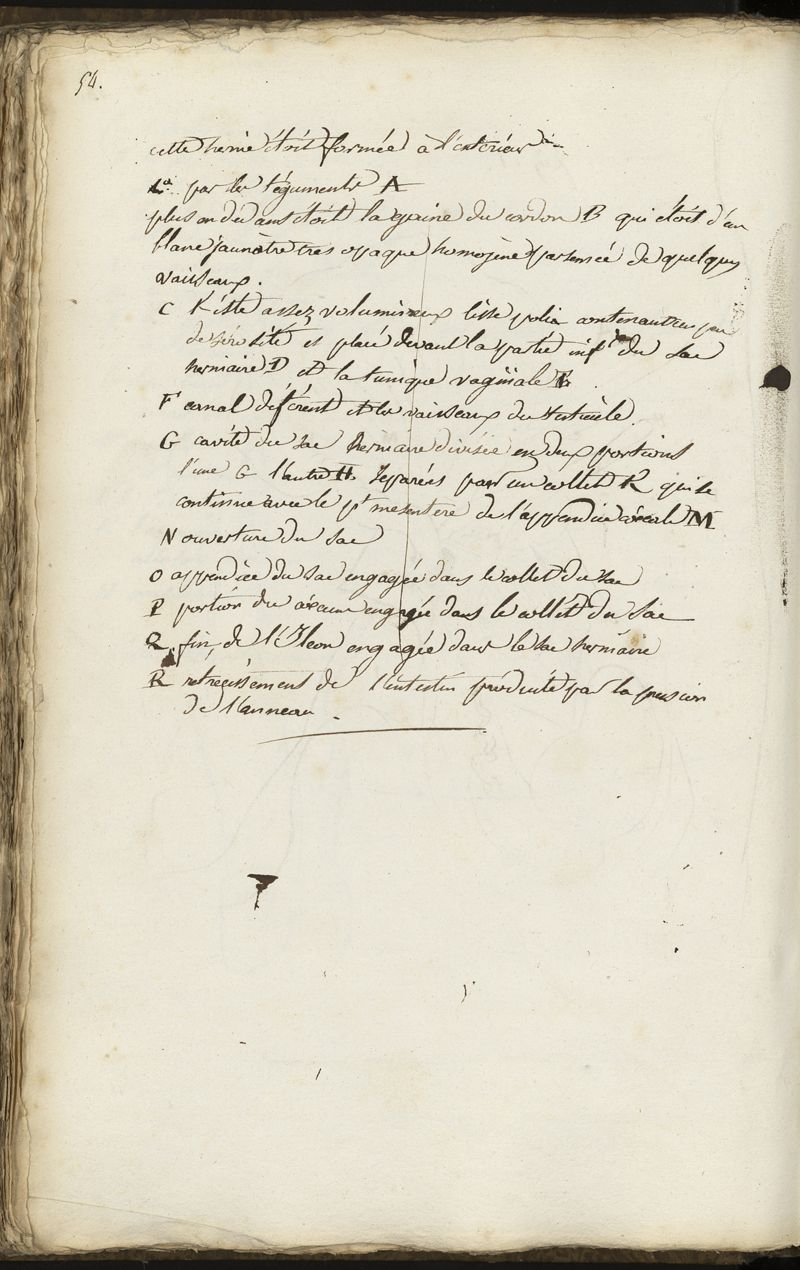 54.
cette hernie étoit formée à l'exterieur
1.° par les téguments A
plus en dedans étoit la gaine du cordon B qui étoit d'un
blanc jaunatre tres opaque homogène parsemée de quelques
vaisseaux.
C Kiste assez volumineux lisse polie contenant un peu
de sérosité et placé devant la partie inf.re du sac
herniaire D et la tunique vaginale E
F canal déférent et les vaisseaux du testicule.
G cavité du sac herniaire divisée en deux portions
l'une G l'autre H separées par un collet K qui se
continue avec le pt mesentere de l'appendice cœcale M
N ouverture du sac
O appendice du sac engagée dans le collet du sac
P portion du cœcum engagée dans le collet du sac
Q fin de l'Ileon engagée dans le sac herniaire
R retrecissement de l'intestin produite par la pression
de l'anneau.